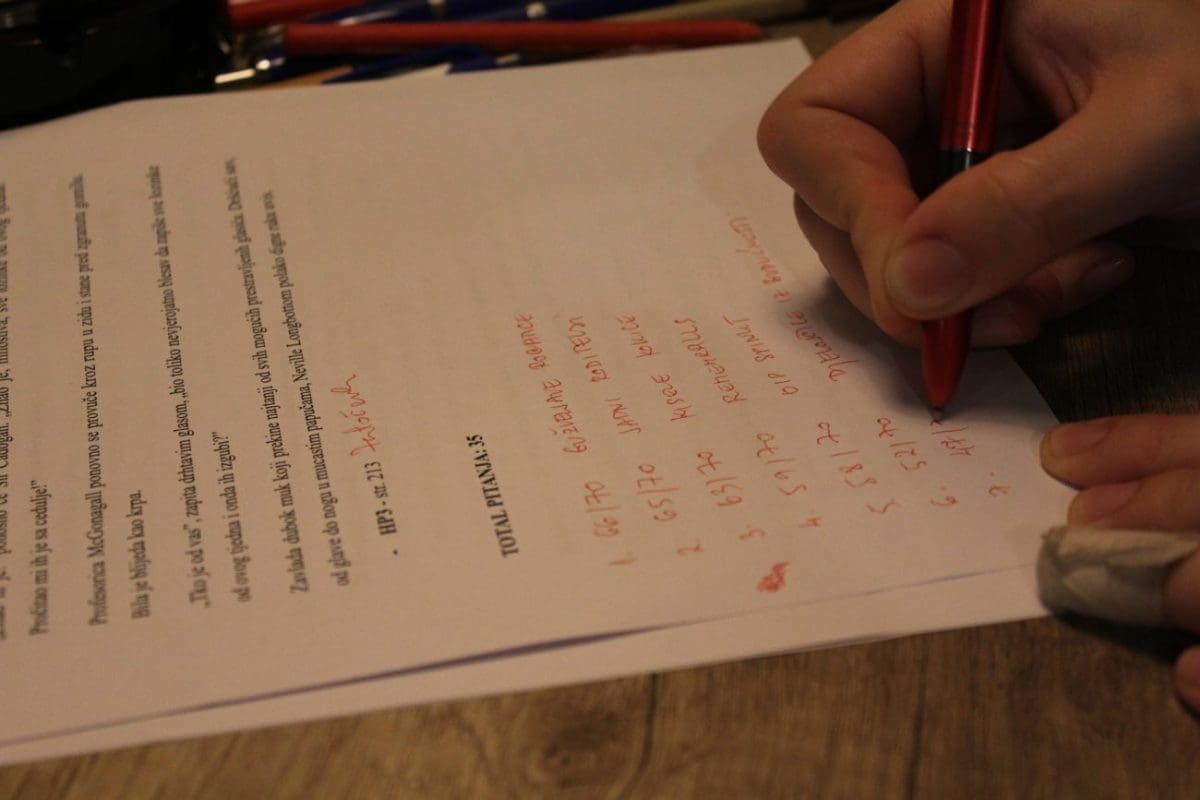 ponosno će sir Cadogan. „Znao je, milostiva, sve lozinke od ovog tjedna
Pročitao mi ih je sa cedulje!"
Profesorica McGonagall ponovno se provuče kroz rupu u zidu i stane pred zgranutu gomilu.
Bila je blijeda kao krpa.
„Tko je od vas”, zapita drhtavim glasom, „bio toliko nevjerojatno blesav da zapiše sve lozinke
od ovog tjedna i onda ih izgubi?”
Zavlada dubok muk koji prekine najtanji od svih mogućih prestravljenih glasića. Dršćući sav,
od glave do nogu u mucastim papučama, Neville Longbottom polako digne ruku uvis.
• HP3 - str. 213
TOTAL PITANJA: 35
1. 66/70
2. 65/70 JAVNI RODITELJI
3. 63/70 KISELE
4. 59/70 REMEMBRALLS
5. 58/70 DIP
6. 52/70 DJEVOJKE IZ
7. 47/7